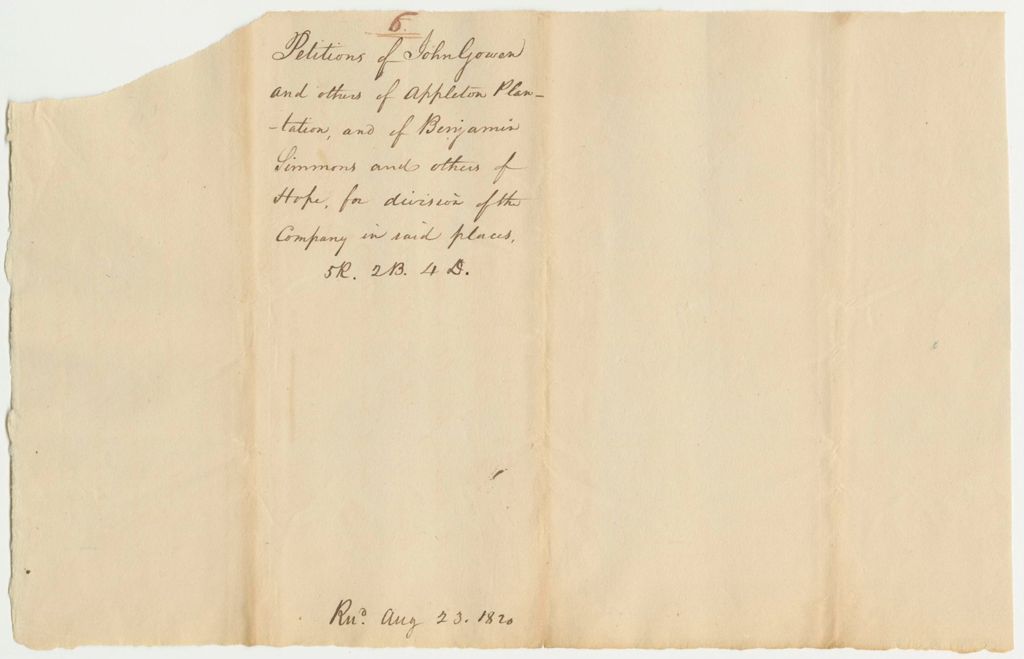 6.
Petitions of John Gowen
and others of Appleton Plan-
-tation, and of Benjamin
Simmons and others of
Hope, for division of the
Company in said places,
5R. 2B. 4 D.
Recd. Aug 23. 1820